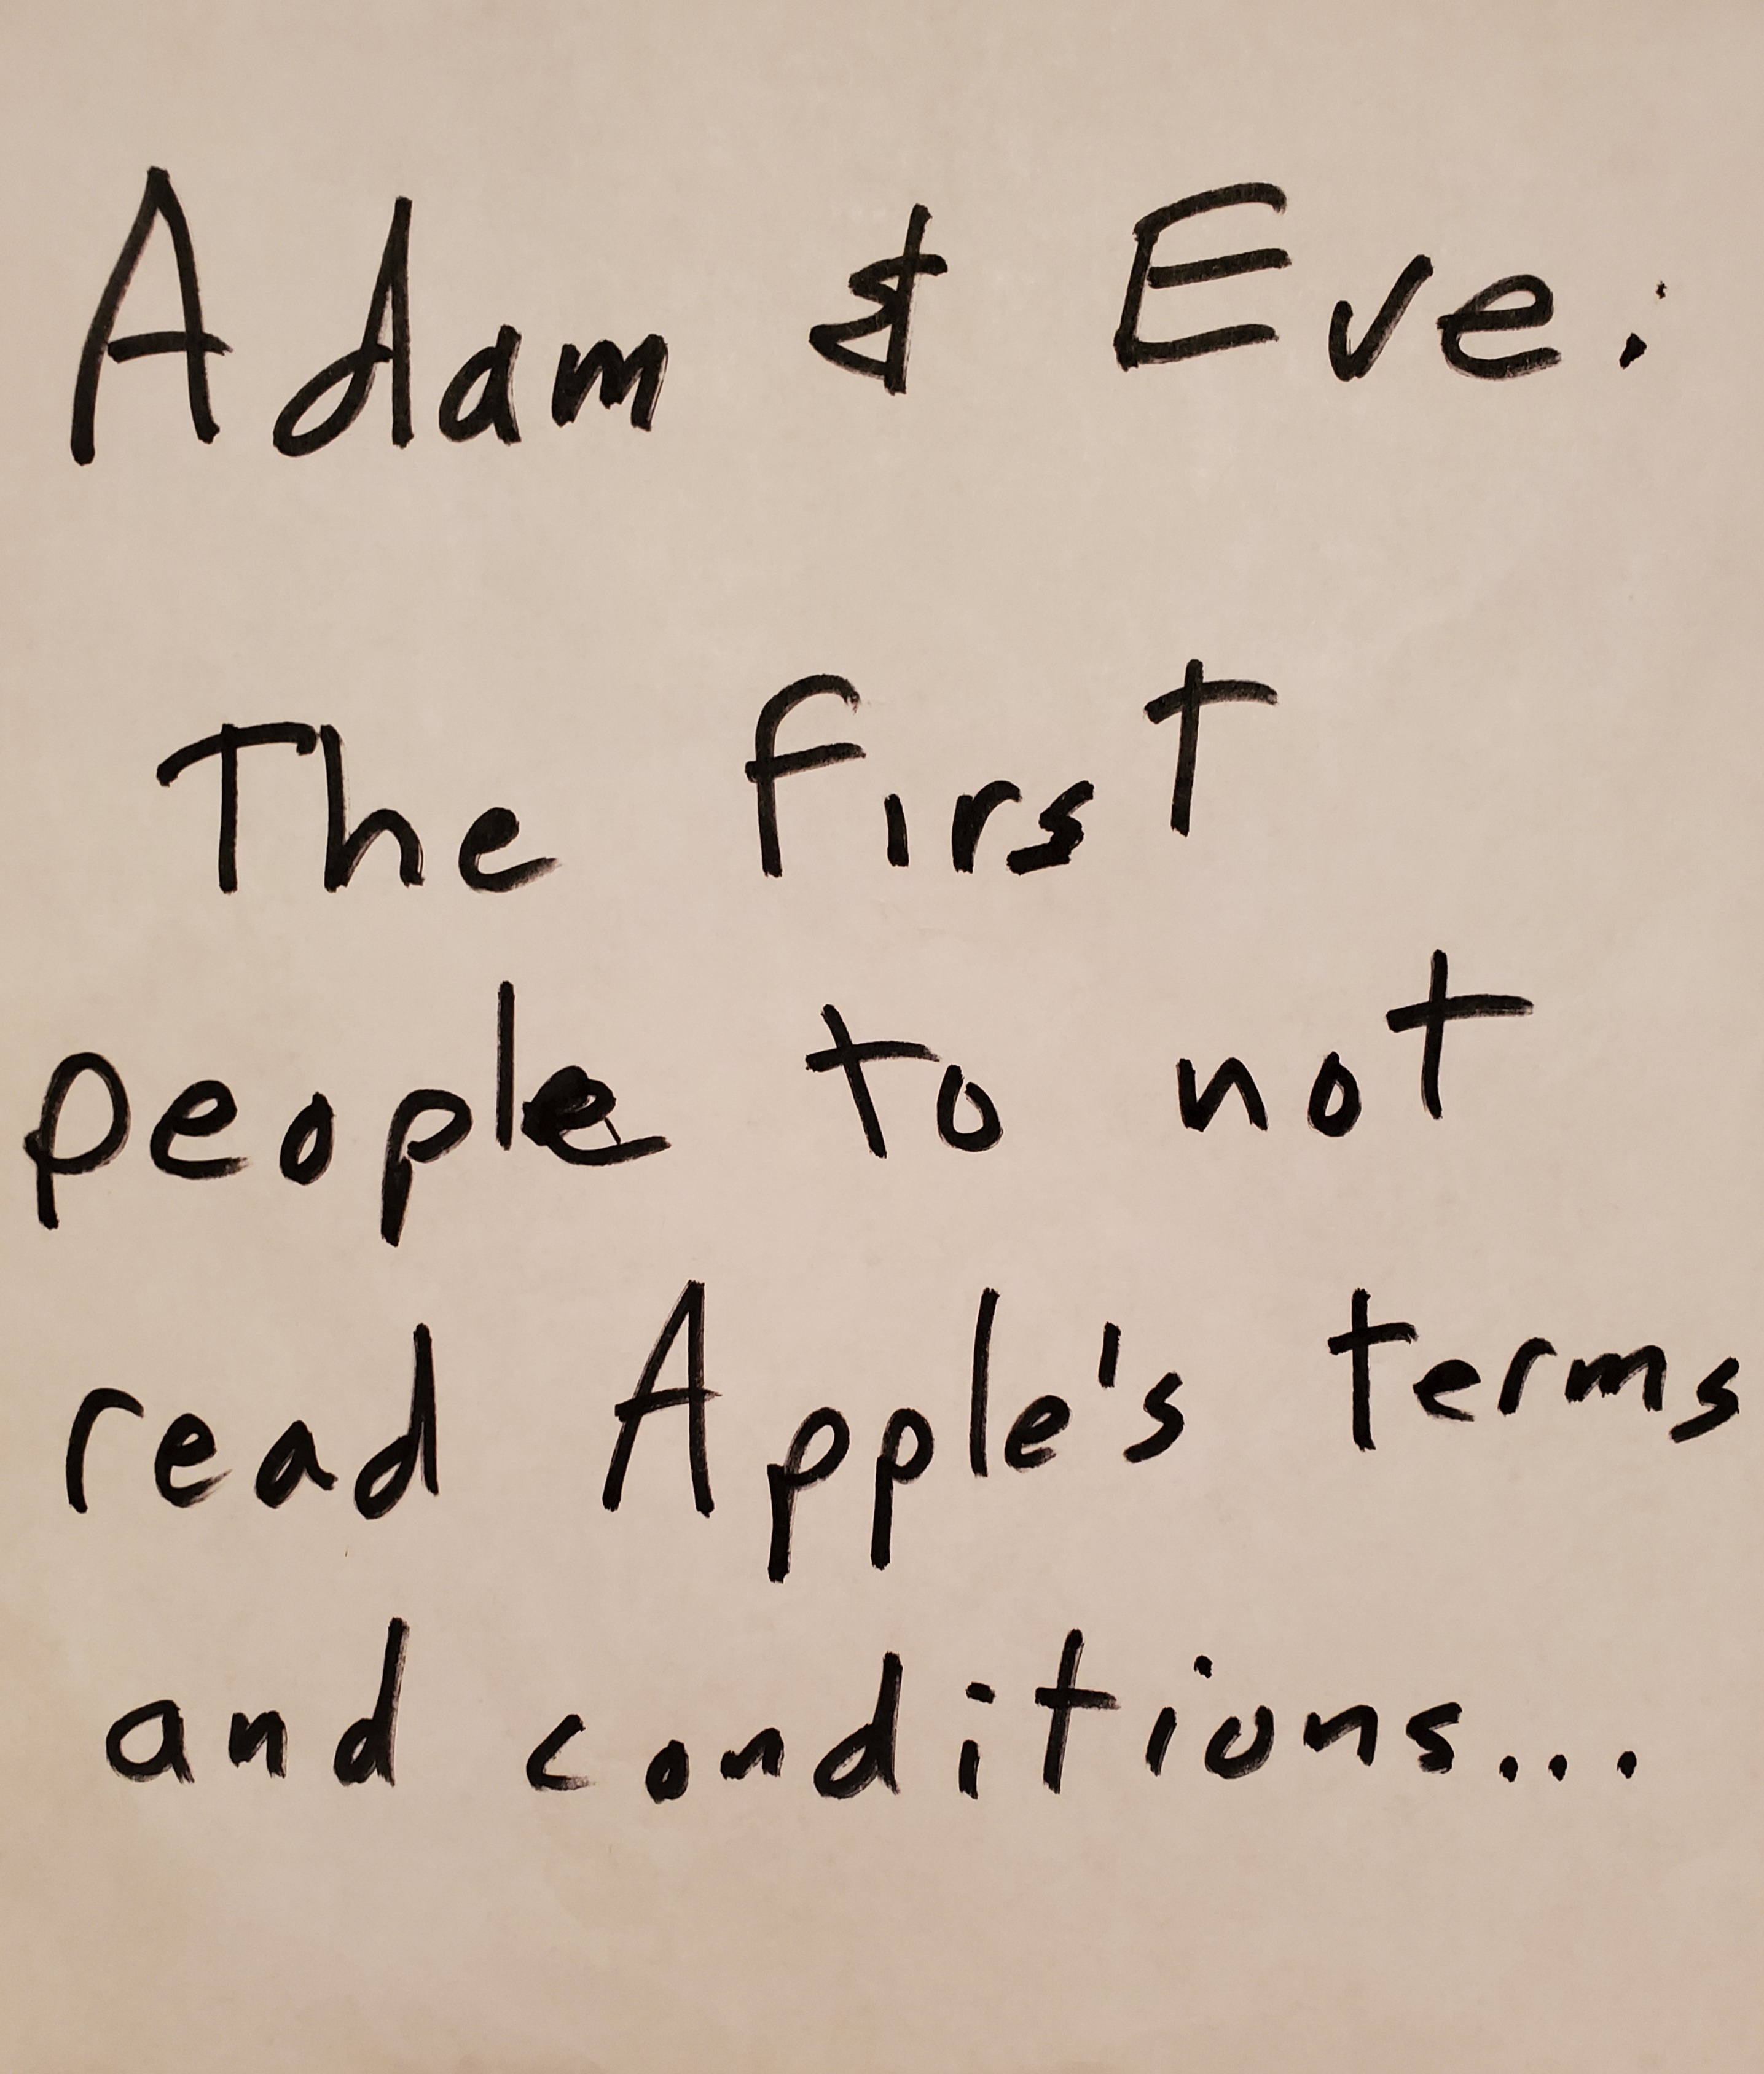 Adam & Eve:
The first
people to not
read Apple's terms
and conditions...